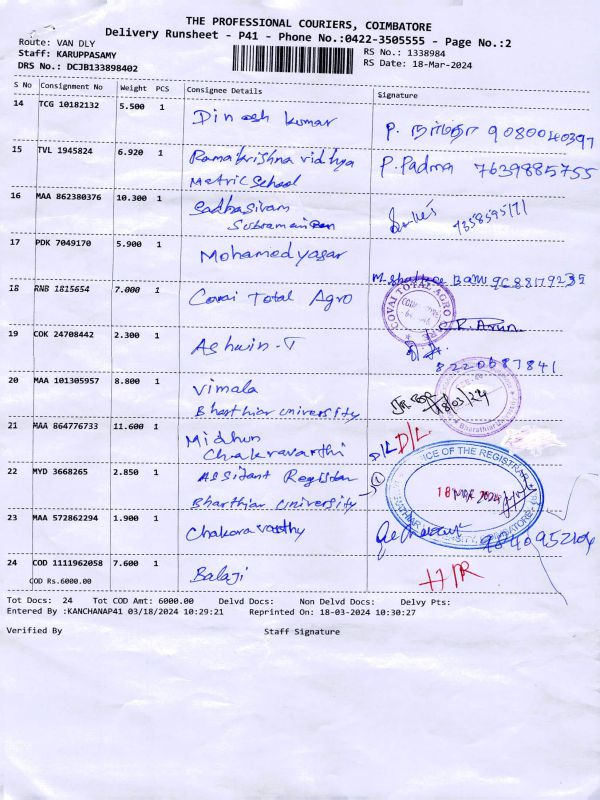 THE PROFESSIONAL COURIERS, COIMBATORE
Delivery Runsheet - P41 - Phone No.:0422-3505555 - Page No.:2
Route: VAN DLY
RS No.: 1338984
Staff: KARUPPASAMY
RS Date: 18-Mar-2024
DRS No.: DCJB133898402
S No Consignment No Weight PCS Consignee Details Signature
14 TCG 10182132 5.500 1 Dinesh kumar P. 9080040397
15 TVL 1945824 6.920 1 Ramakrishna vidhya P. Padma 7639885755
Metric School
16 MAA 862380376 10.300 1 Sadhasivam
Subramanian
17 PDK 7049170 5.900 1 Mohamed yasar
Banu 9688179235
18 RNB 1815654 7.000 1 Covai Total Agro COVAI TOTAL AGRO
19 COK 24708442 2.300 1 Ashwin-T
8220687841
20 MAA 101305957 8.800 1 Vimala 18/03/24
Bharthiar University
21 MAA 864776733 11.600 1 Midhun D/L D/L
Chakravarthi
22 MYD 3668265 2.850 1 Assitant Registar OFFICE OF THE REGISTRAR
Bharthiar University 18 MAR 2024
23 MAA 572862294 1.900 1 Chakoravarthy 9840952104
24 COD 1111962058 7.600 1 Balaji
COD Rs.6000.00
Tot Docs: 24 Tot COD Amt: 6000.00 Delvd Docs: Non Delvd Docs: Delvy Pts:
Entered By :KANCHANAP41 03/18/2024 10:29:21 Reprinted On: 18-03-2024 10:30:27
Verified By Staff Signature